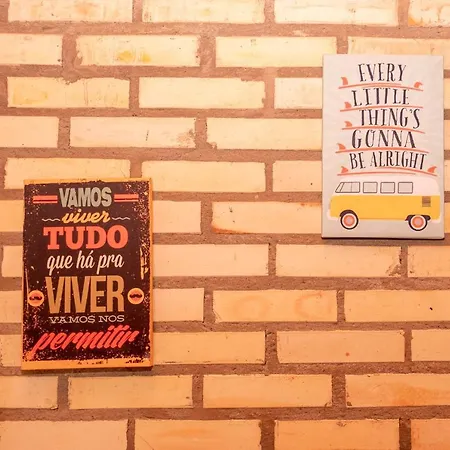 VAMOS
viver
TUDO
que há pra
VIVER
VAMOS NOS
permitir
EVERY
LITTLE
THING'S
GONNA
BE ALRIGHT